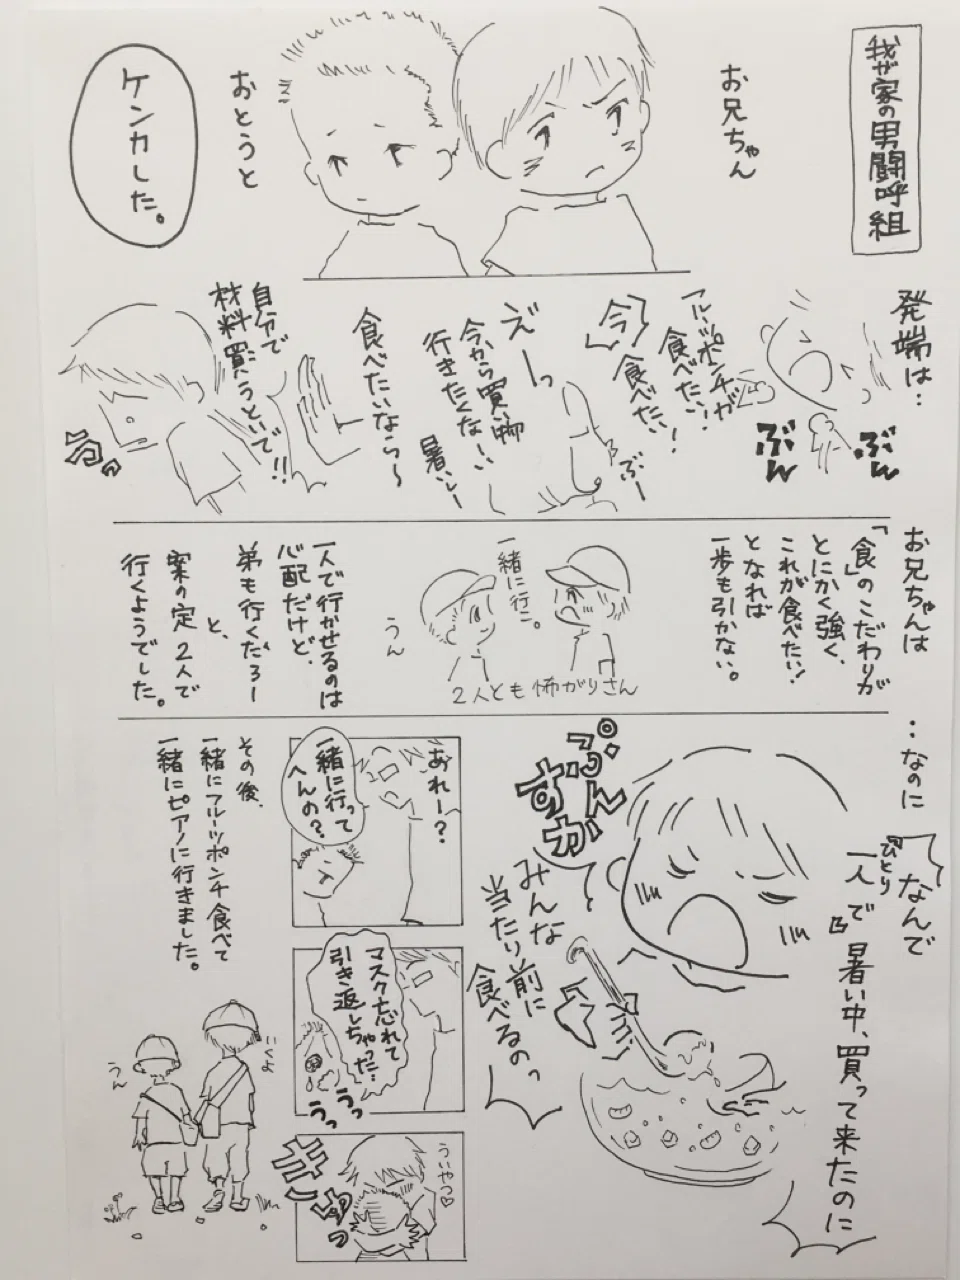 我が家の男闘呼組
お兄ちゃん
おとうと
ケンカした。
発端は…
ぶん
ぶん
フルーツポンチが
食べたい!
今
食べたい!
ぶー
えーっ
今から買い物
行きたくなーい
暑いしー
食べたいなら〜
自分で
材料買うといで!!
お兄ちゃんは
「食」のこだわりが
とにかく強く、
これが食べたい!
となれば
一歩も引かない。
一緒に行こ。
うん
2人とも怖がりさん
一人で行かせるのは
心配だけど、
弟も行くだろー
と、
案の定2人で
行くようでした。
…なのに
なんで
『一人で』
ひとり
暑い中、買って来たのに
ぷんすか
みんな
当たり前に
食べるのっ
あれー?
一緒に行って
へんの?
マスク忘れて
引き返しちゃった…
うっ
うっ
ういやつ♡
ギュッ
その後、
一緒にフルーツポンチ食べて
一緒にピアノに行きました。
いくよ
うん